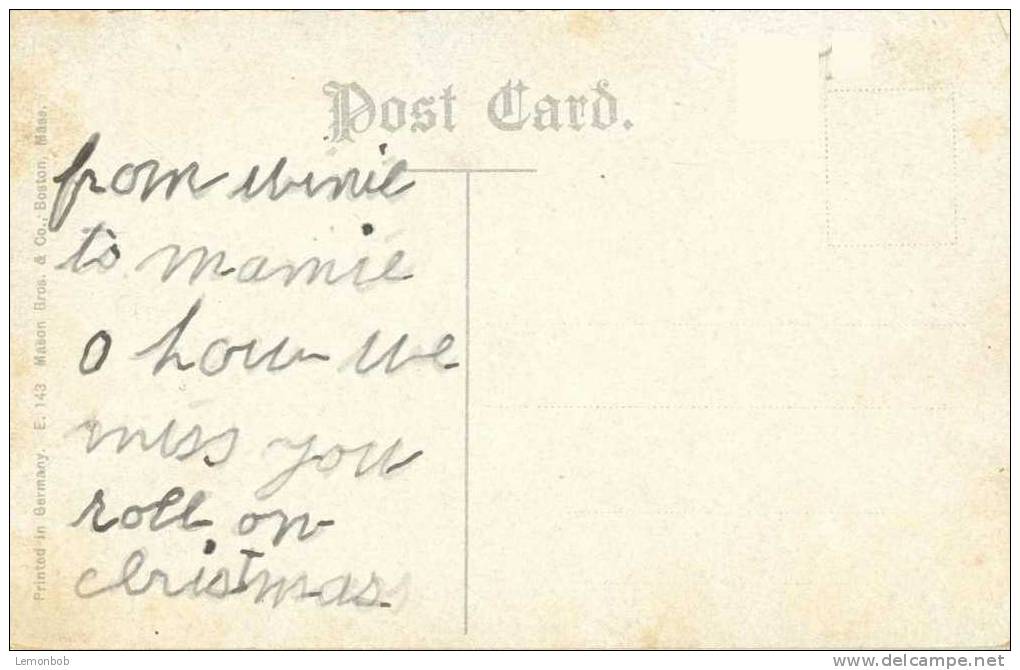 Post Card.
from winie
to mamie
o how we
miss you
roll on
christmas
Printed in Germany. E. 143 Mason Bros. & Co., Boston, Mass.
Lemonbob
www.delcampe.net